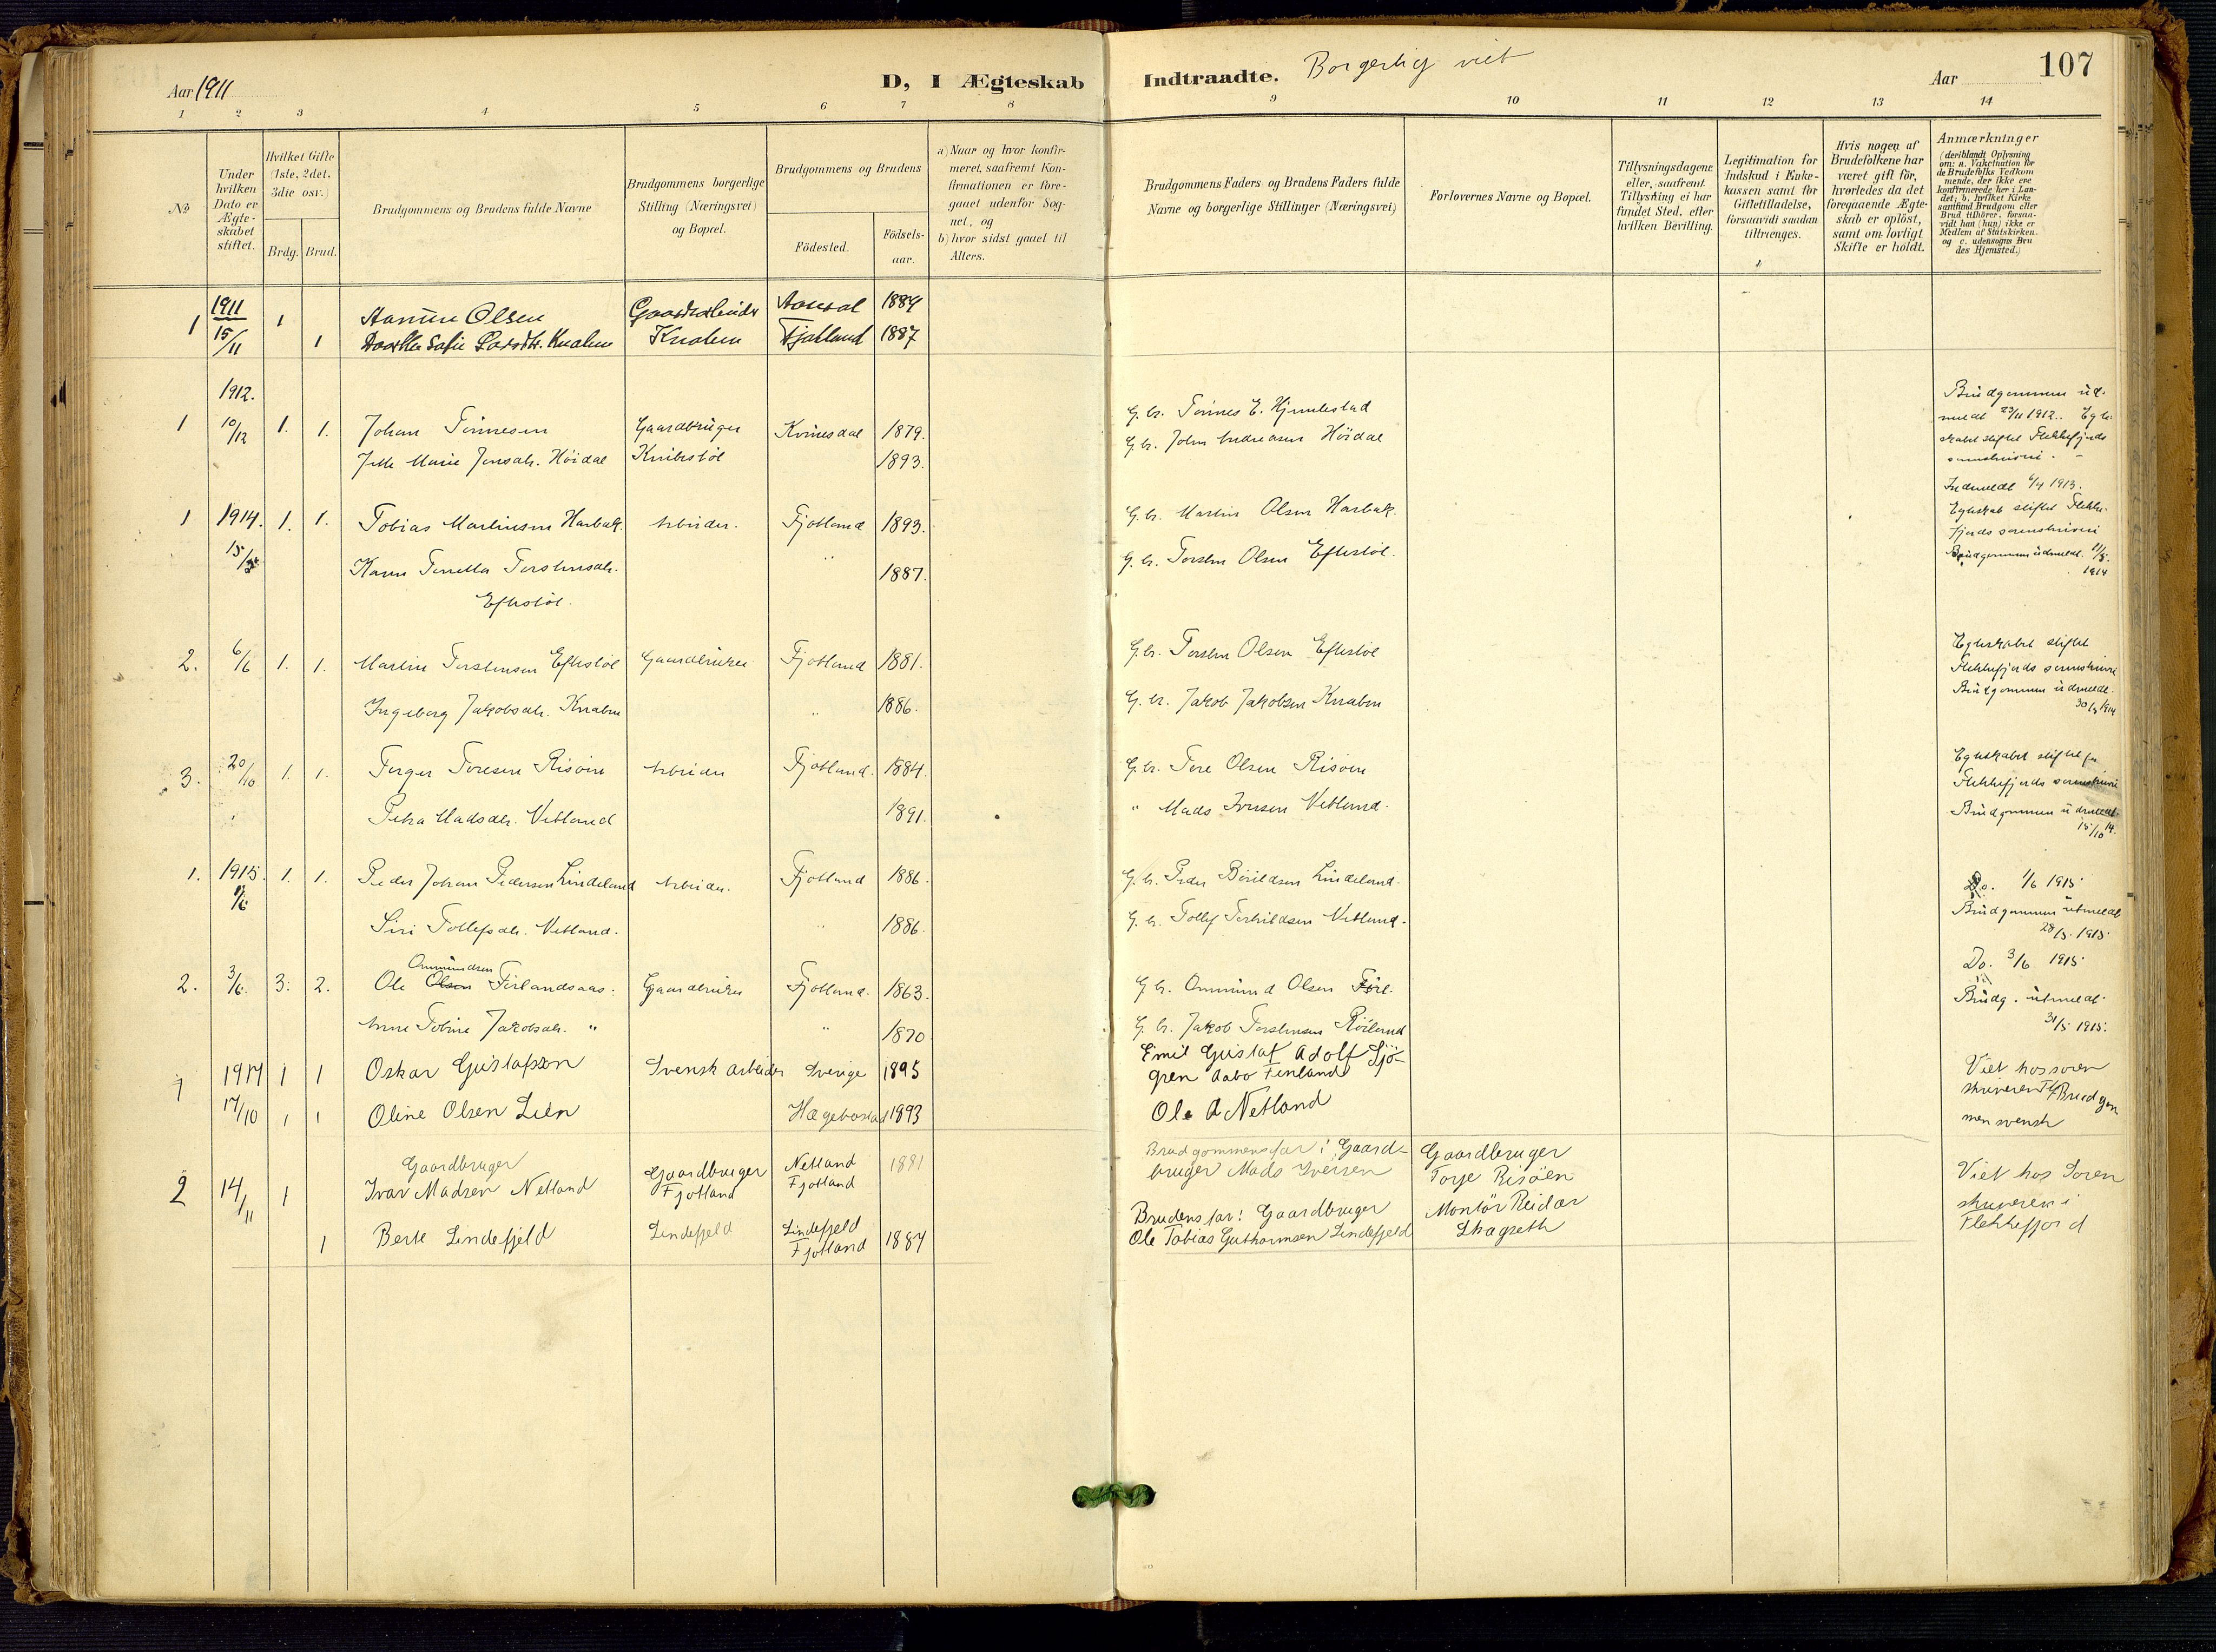 Aar 1911
D, I Ægteskab Indtraadte. Borgerlig viet
Aar
107
1 2 3 4 5 6 7 8 9 10 11 12 13 14
No
Under hvilken Dato er Ægteskabet stiftet.
Hvilket Gifte (1ste, 2det, 3die osv.)
Brdg. Brud.
Brudgommens og Brudens fulde Navne
Brudgommens borgerlige Stilling (Næringsvei) og Bopæl.
Brudgommens og Brudens
Födested.
Födsels-aar.
a) Naar og hvor konfirmeret, saafremt Konfirmationen er foregaaet udenfor Sognet, og
b) hvor sidst gaaet til Alters.
Brudgommens Faders og Brudens Faders fulde Navne og borgerlige Stillinger (Næringsvei)
Forlovernes Navne og Bopæl.
Tillysningsdagene eller, saafremt Tillysning ei har fundet Sted, efter hvilken Bevilling.
Legitimation for Indskud i Enkekassen samt for Giftetilladelse, forsaavidt saadan tiltrænges.
Hvis nogen af Brudefolkene har været gift för, hvorledes da det foregaaende Ægteskab er oplöst, samt om lovligt Skifte er holdt.
Anmærkninger
(deriblandt Oplysning om: a. Vakcination for de Brudefolks Vedkommende, der ikke ere konfirmerede her i Landet; b. hvilket Kirkesamfund Brudgom eller Brud tilhörer, forsaavidt han (hun) ikke er Medlem af Statskirken. og c. udensogns Brudes Hjemsted.)
1 1911 1 Olsen Gaardarbeider 1884
15/11 1 Knaben Fjotland 1887
1912.
1 10/12 1. 1. Johan Tønnesen Gaardbruger Kvinesdal 1879. G. br. Tønnes E.
Marie Jonsdtr. Höidal Knibestøl 1893. G. br. John Andreasen Höidal
Brudgommen ud-
meldt 23/11 1912. Egte-
skabet stiftet Flekkefjords
Indmeldt 6/4 1913.
1 1914. 1. 1. Tobias Martinsen Harbak. Arbeider. Fjotland 1893. G. br. Martin Olsen Harbak.
15/5 Karen Torstensdtr. " 1887. G. br. Torsten Olsen Eftestöl.
Eftestöl.
Egteskab stiftet Flekke-
fjords sorenskriveri
Brudgommen udmeldt 11/5.
1914
2. 6/6 1. 1. Martin Torstensen Eftestöl Gaardbruker Fjotland 1881. G. br. Torsten Olsen Eftestöl
Ingeborg Jakobsdtr. Knaben " 1886. G. br. Jakob Jakobsen Knaben
Egteskabet stiftet
Flekkefjords sorenskriveri
Brudgommen udmeldt.
30/5 1914
3. 20/10 1. 1. Torger Toresen Risöen Arbeider Fjotland. 1884. G. br. Tore Olsen Risöen
Petra Madsdtr. Netland 1891. " Mads Iversen Netland.
Egteskabet stiftet
Flekkefjords sorenskriveri
Brudgommen udmeldt.
15/10 14.
1. 1915. 1. 1. Peder Johan Pedersen Lindeland Arbeider. Fjotland 1886. G. br. Peder Lindeland.
1/6 Siri Tollefsdtr. Netland. " 1886. G. br. Tollef Netland.
Do. 1/6 1915
Brudgommen utmeldt
28/5. 1915
2. 3/6. 3. 2. Ole Ommundsen Olsen Fjotland. 1863. G. br. Ommund Olsen
Gaardbruker
Anne Tobine Jakobsdtr. " " 1870 G. br. Jakob Torstensen
Do. 3/6 1915
Brudg. utmeldt
31/5 1915.
1 1917 1 1 Oskar Gustafson Svensk arbeider Sverige 1895 Emil Gustaf Adolf Sjö-
gren Aabo Finland
17/10 1 1 Oline Olsen Lien Hægebostad 1893 Ole A Netland
Viet hos soren
skriveren Fl. Brudgom
men svensk
2 14/11 1 Gaardbruger
Ivar Madsen Netland Gaardbruger Fjotland Netland Fjotland 1881 Brudgommens far: Gaard-
bruger Mads Iversen
Gaardbruger
Torje Risöen
1 Berte Lindefjeld Lindefjeld Lindefjeld Fjotland 1887 Brudens far: Gaardbruger
Ole Tobias Guthormsen Lindefjeld
Montör Reidar
Skagseth
Viet hos Soren
skriveren i
Flekkefjord